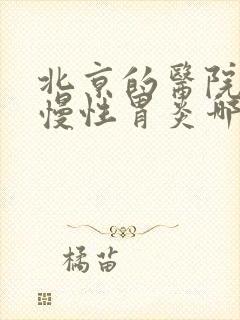 北京的醫院
慢性胃炎哪
橘苗